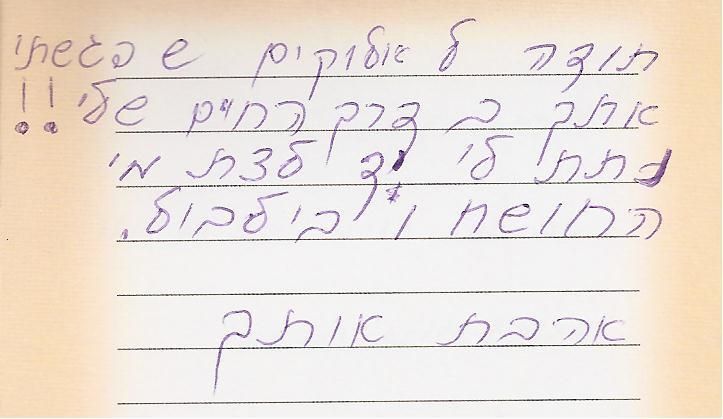 תודה ל אלוקים ש פגשתי
אותך ב דרך החיים שלי !!
נתת לי יד לצת מי
החושח ו*בילבול.
אהבת אותך